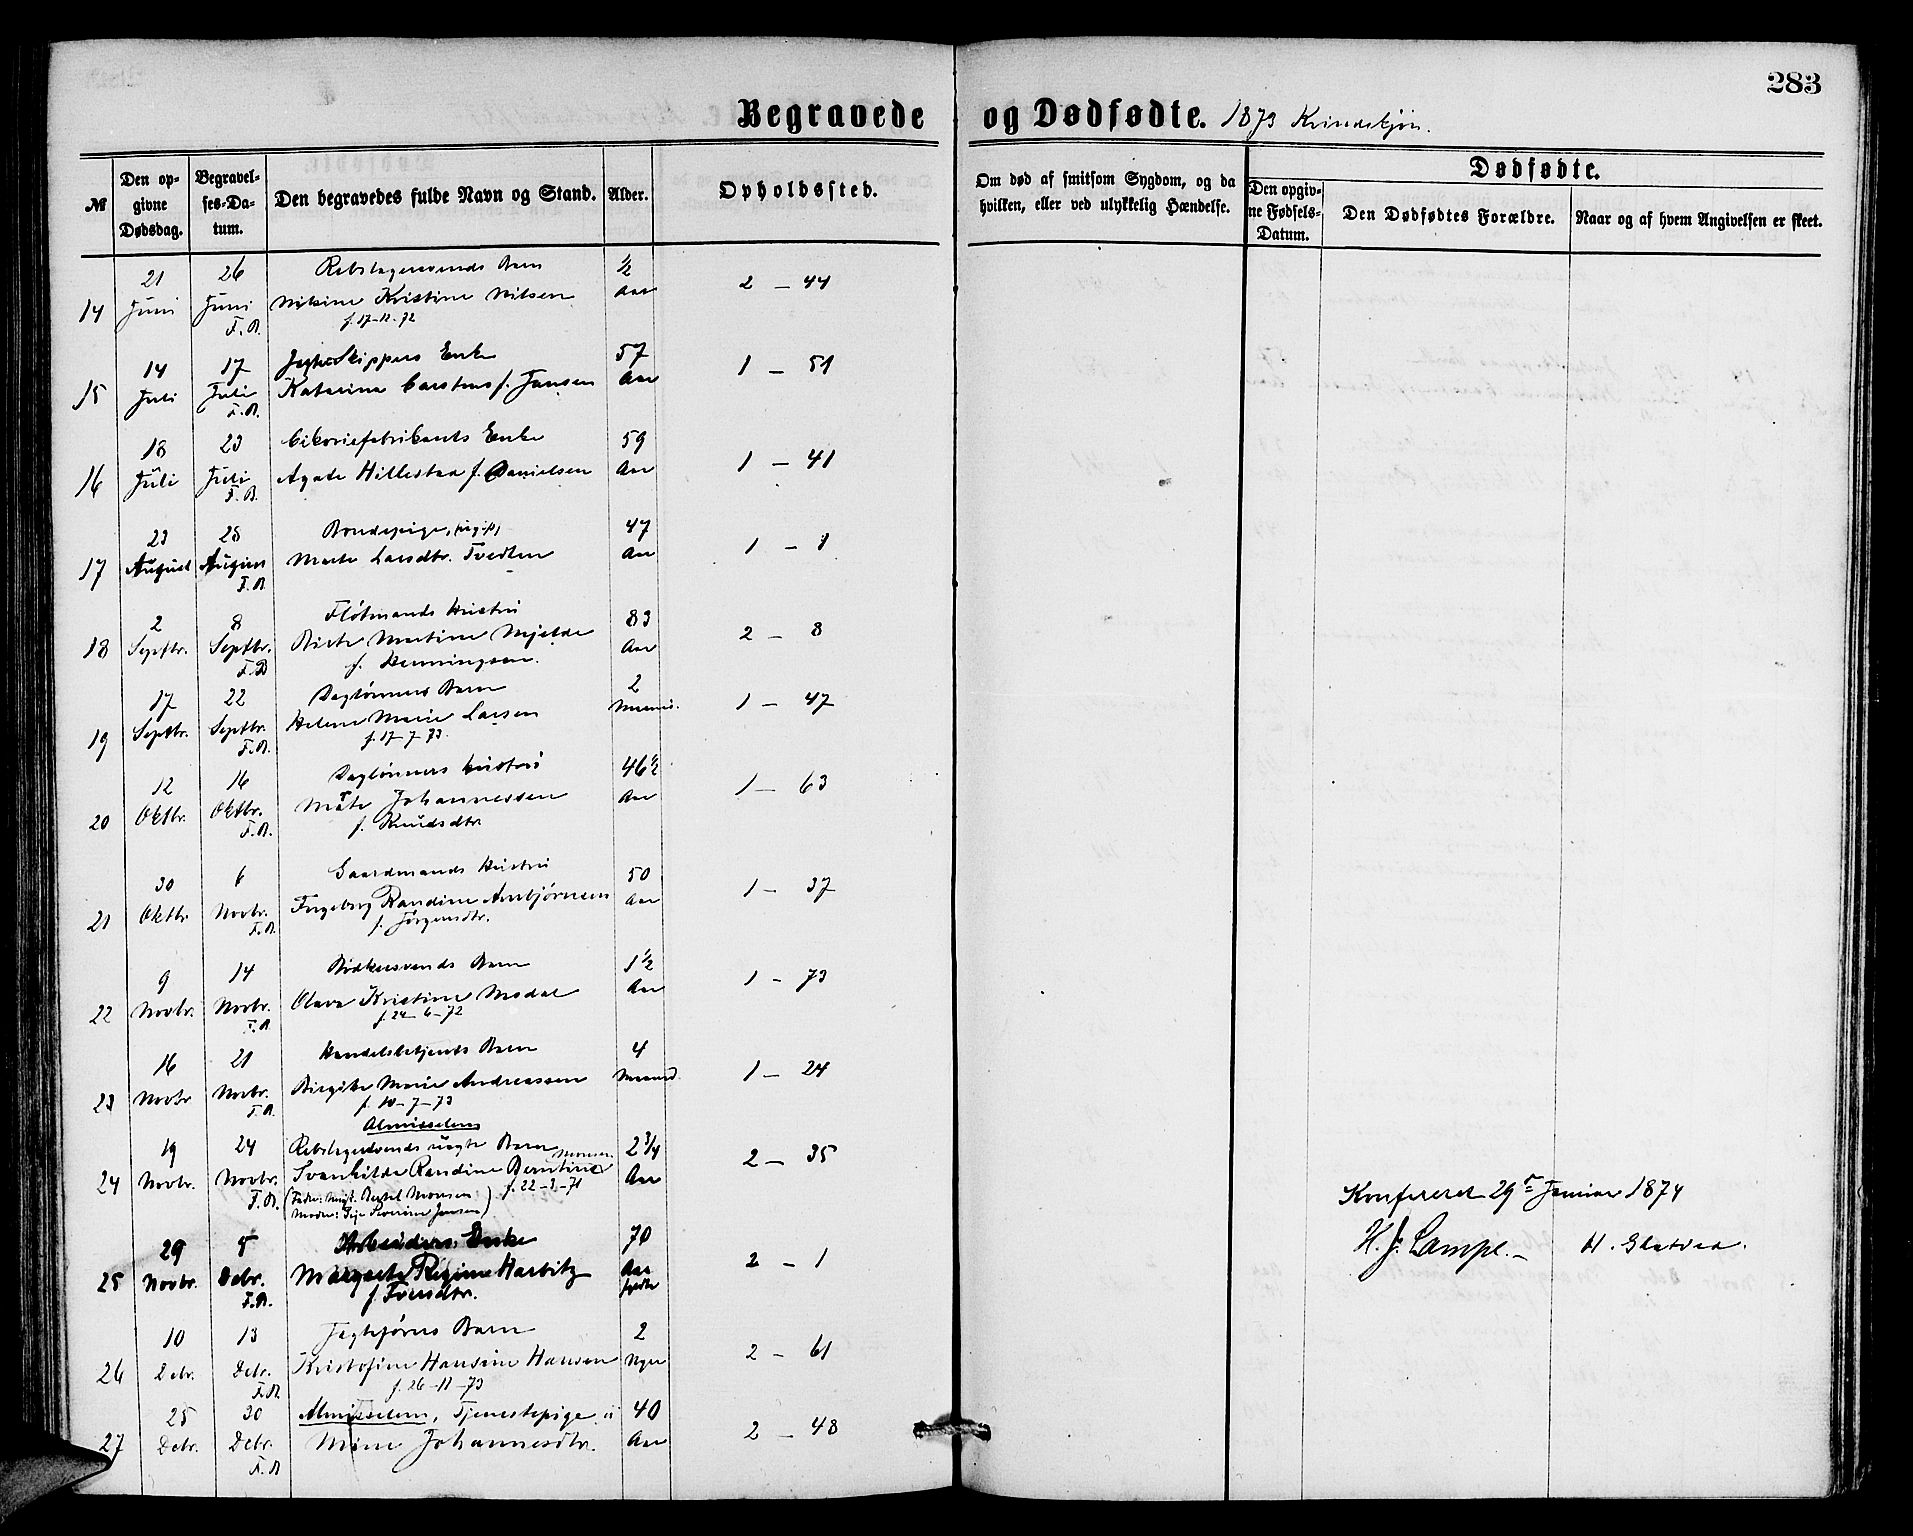 283
Begravede og Dødfødte. 1873 Kvindekjøn.
№
Den opgivne Dødsdag.
Begravelses-Datum.
Den begravedes fulde Navn og Stand.
Alder.
Opholdssted.
Om død af smitsom Sygdom, og da hvilken, eller ved ulykkelig Hændelse.
Dødfødte.
Den opgivne Fødsels-Datum.
Den Dødfødtes Forældre.
Naar og af hvem Angivelsen er skeet.
21 26 Rebslagersvends Barn ½
14 Juni Juni Nilsine Kristine Nilsen Aar 2 – 44
F.B. f. 17-12-72
14 17 Jagtskippers Enke 57
15 Juli Juli Katarina Carstens f. Jansen Aar 1 – 51
F.B.
18 23 Cikoriefabrikants Enke 59
16 Juli Juli Agate Hillestad f. Danielsen Aar 1 – 41
F.B.
23 28 Bondepige, (ugift) 47
17 August August Marte Larsdtr. Tvedten Aar 1 – 1
F.B.
2 8 Flôtmands Hustru 83
18 Septbr. Septbr. Birte Martine Mjelde Aar 2 – 8
F.B f. Henningsen.
17 22 Daglønners Barn 2
19 Septbr. Septbr. Helene Marie Larsen Maaned. 1 – 47
F.B. f. 17-7-73.
12 16 Daglønners Hustru 46½
20 Oktbr. Oktbr. Marte Johannessen Aar 1 – 63
F.B. f. Knudsdtr.
30 6 Gaardmands Hustru 50
21 Oktbr Novbr. Ingeborg Randine Arnbjørnsen Aar 1 – 37
F.B. f. Jørgensdtr.
9 14 Bødkersvends Barn 1½
22 Novbr. Novbr. Olava Kristine Modal Aar 1 – 73
F.B. f. 24-6-72
16 21 Handelsbetjents Barn 4
23 Novbr Novbr. Birgitte Marie Andreassen Maaned. 1 – 24
F.B. f. 10-7-73
Almisselem
19 24 Rebslagersvends uægte Barn 2¾
24 Novbr. Novbr. Svanhilda Randine Berntine Monsen Aar 2 – 35
F.B. f. 22-3-71
(Fader: Ungk. Bertel Monsen
Moder: Pige Severine Jansen)
29 5 Arbeiders Enke 70
25 Novbr. Debr. Margrete Regine Harbitz Aar 2 – 1
F.B. f. Iversdtr.
10 13 Barn 2
26 Debr. Debr. Kristofine Hansine Hansen Uger 2 – 61
F.B. f. 26-11-73
25 30 Almisselem, Tjenestepige 40
27 Debr. Debr. Johannesdtr. Aar 2 – 48
F.B
Konfereret 29de Januar 1874
H. J. Lampe. H. Skatvea.